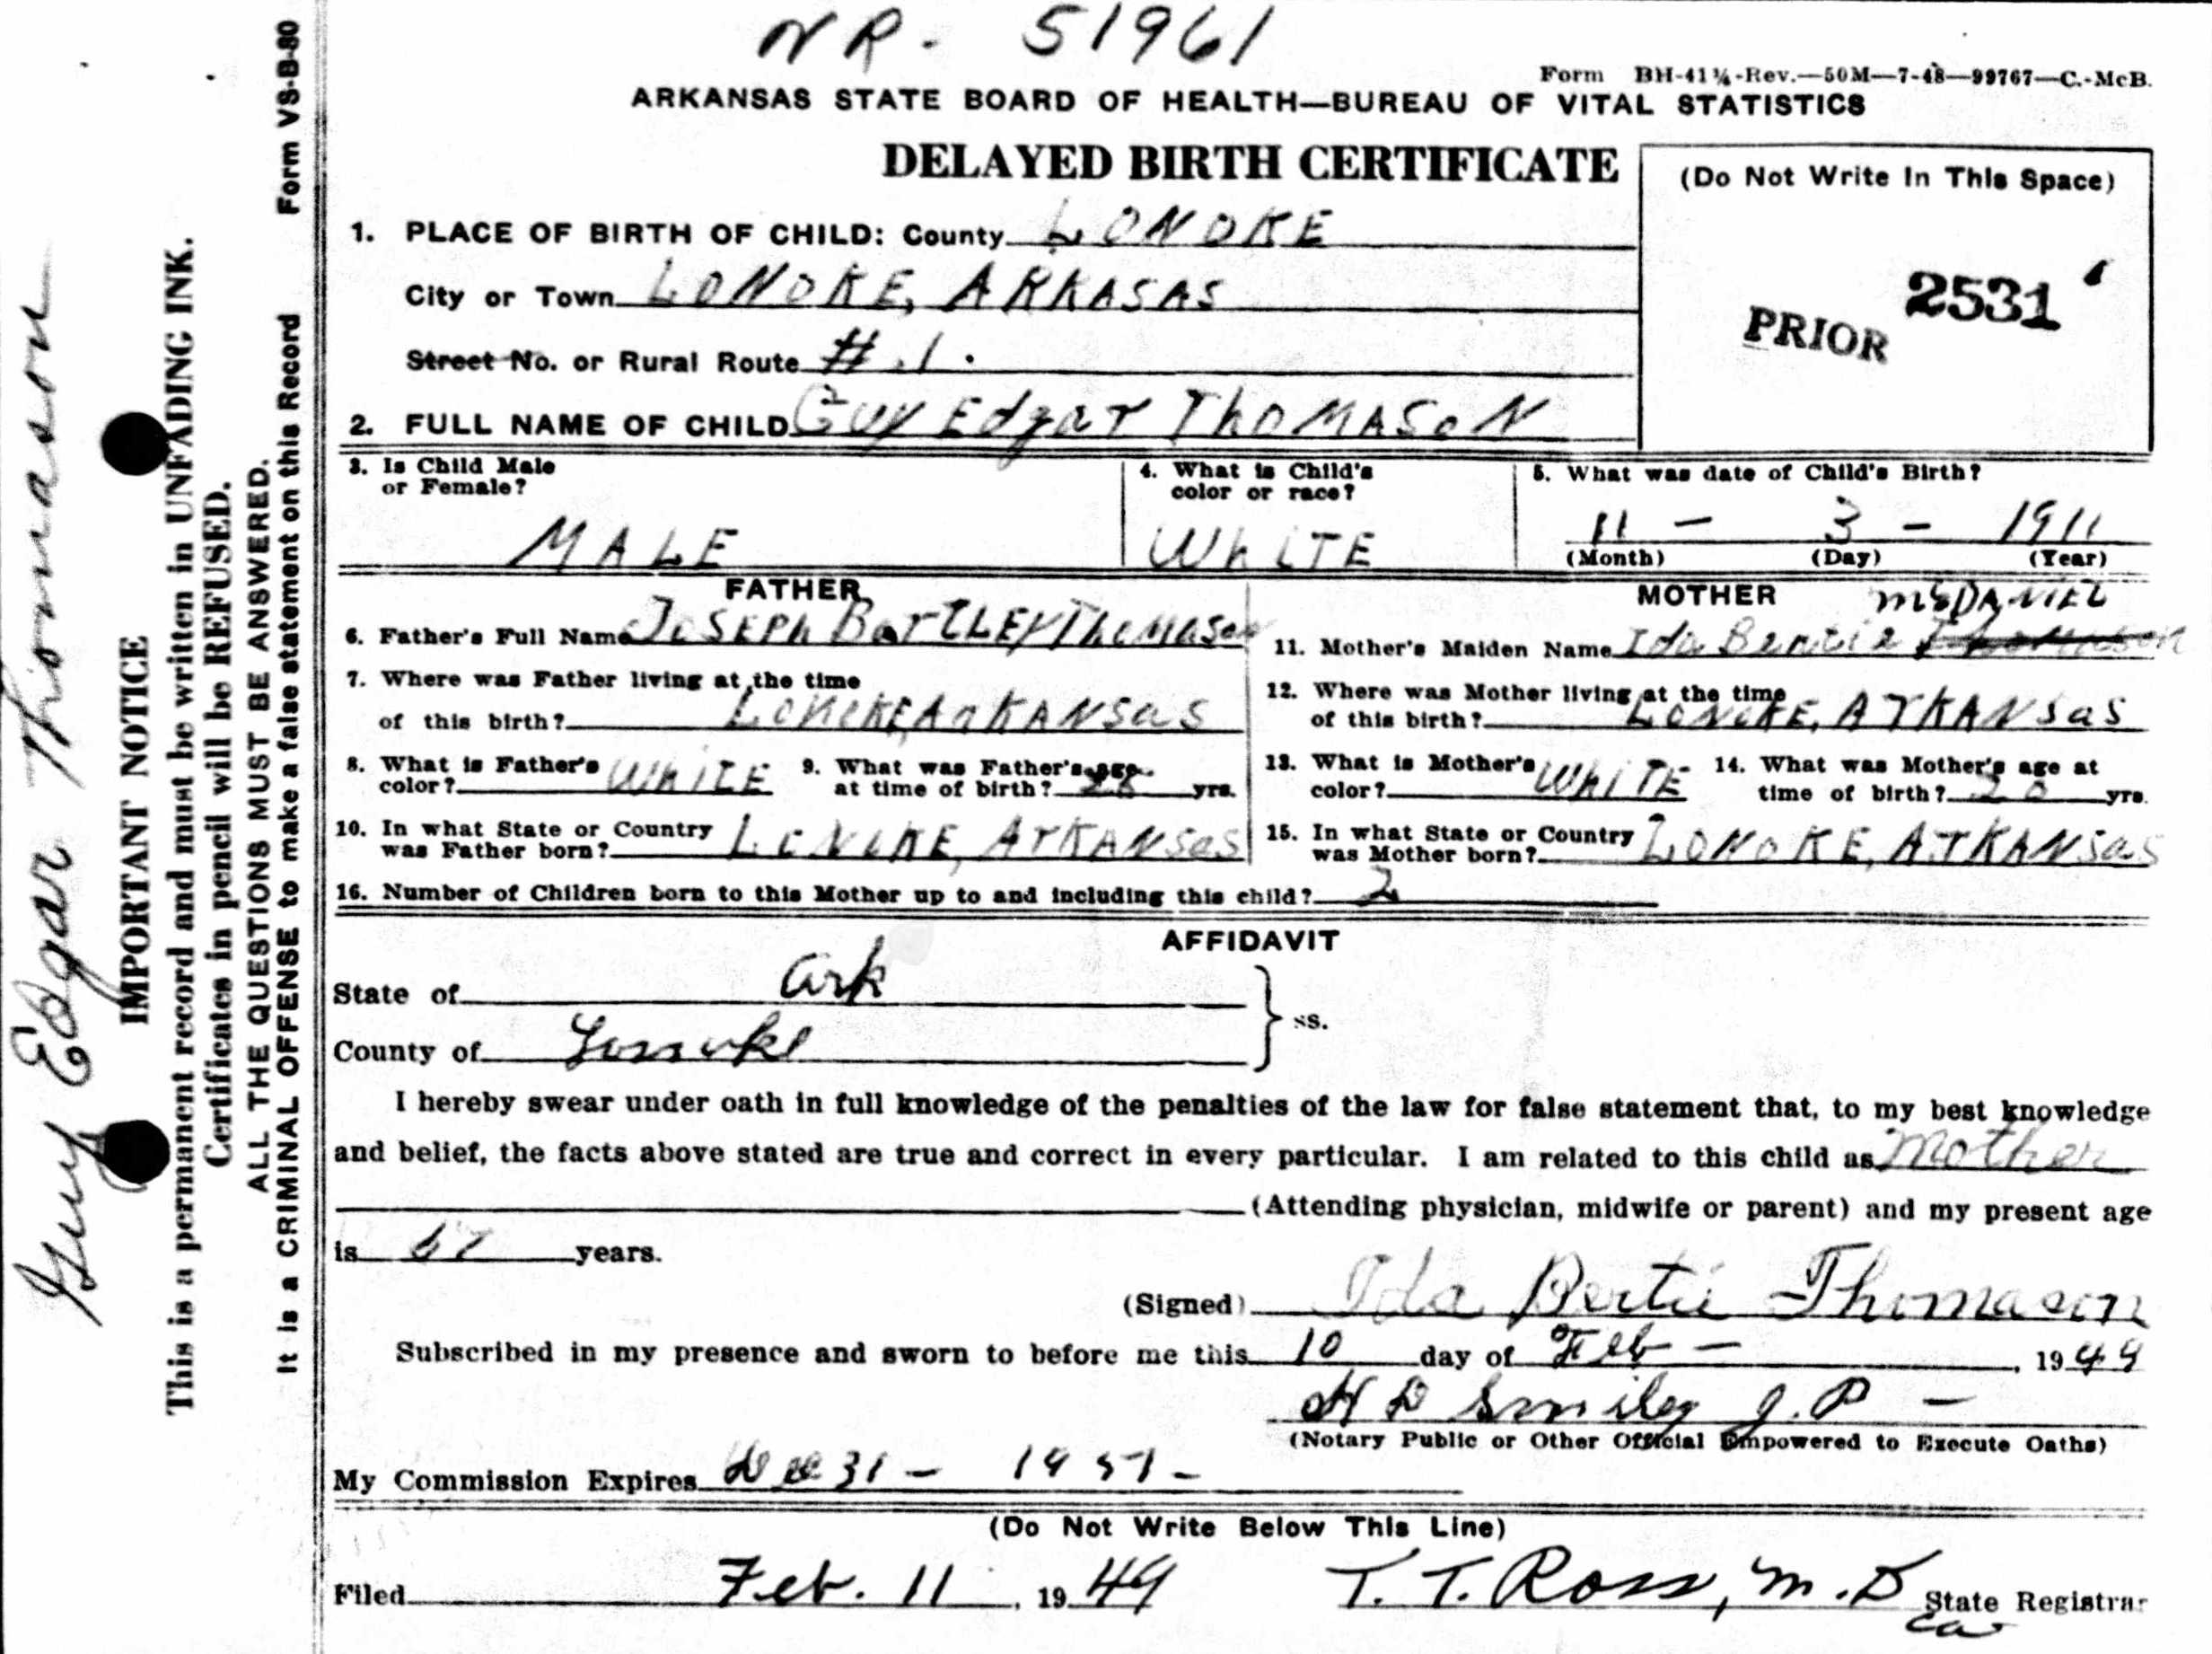 NR- 51961
Form BH-41¼-Rev.—50M—7-48—99767—C.-McB.
ARKANSAS STATE BOARD OF HEALTH—BUREAU OF VITAL STATISTICS
DELAYED BIRTH CERTIFICATE
(Do Not Write In This Space)
PRIOR 2531
1. PLACE OF BIRTH OF CHILD: County LONOKE
City or Town LONOKE, ARKASAS
Street No. or Rural Route #.1.
2. FULL NAME OF CHILD Guy Edgar ThOMASoN
3. Is Child Male or Female? MALE
4. What is Child's color or race? WhiTE
5. What was date of Child's Birth? 11 - 3 - 1911
(Month) (Day) (Year)
FATHER
6. Father's Full Name JoSEPh BarTLEY ThoMason
7. Where was Father living at the time
of this birth? LONOKE, ArKANSas
8. What is Father's color? WhiTE
9. What was Father's age at time of birth? 28 yrs.
10. In what State or Country was Father born? LONOKE, ArKANSas
MOTHER
11. Mother's Maiden Name Ida Bertie Thomason McDANIEL
12. Where was Mother living at the time
of this birth? LONOKE, ArKANSas
13. What is Mother's color? WhiTE
14. What was Mother's age at time of birth? yrs.
15. In what State or Country was Mother born? LONOKE, ArKANSas
16. Number of Children born to this Mother up to and including this child? 2
AFFIDAVIT
State of Ark
County of Lonoke
ss.
I hereby swear under oath in full knowledge of the penalties of the law for false statement that, to my best knowledge
and belief, the facts above stated are true and correct in every particular. I am related to this child as Mother
(Attending physician, midwife or parent) and my present age
is years.
(Signed) Ida Bertie Thomason
Subscribed in my presence and sworn to before me this 10 day of Feb - , 1949
H D Smiley J.P -
(Notary Public or Other Official Empowered to Execute Oaths)
My Commission Expires Dec 31 - 1951 -
(Do Not Write Below This Line)
Filed Feb. 11, 1949 T. T. Ross, M.D State Registrar
ca
Guy Edgar Thomason
IMPORTANT NOTICE
This is a permanent record and must be written in UNFADING INK.
Certificates in pencil will be REFUSED.
ALL THE QUESTIONS MUST BE ANSWERED.
It is a CRIMINAL OFFENSE to make a false statement on this Record
Form VS-B-80